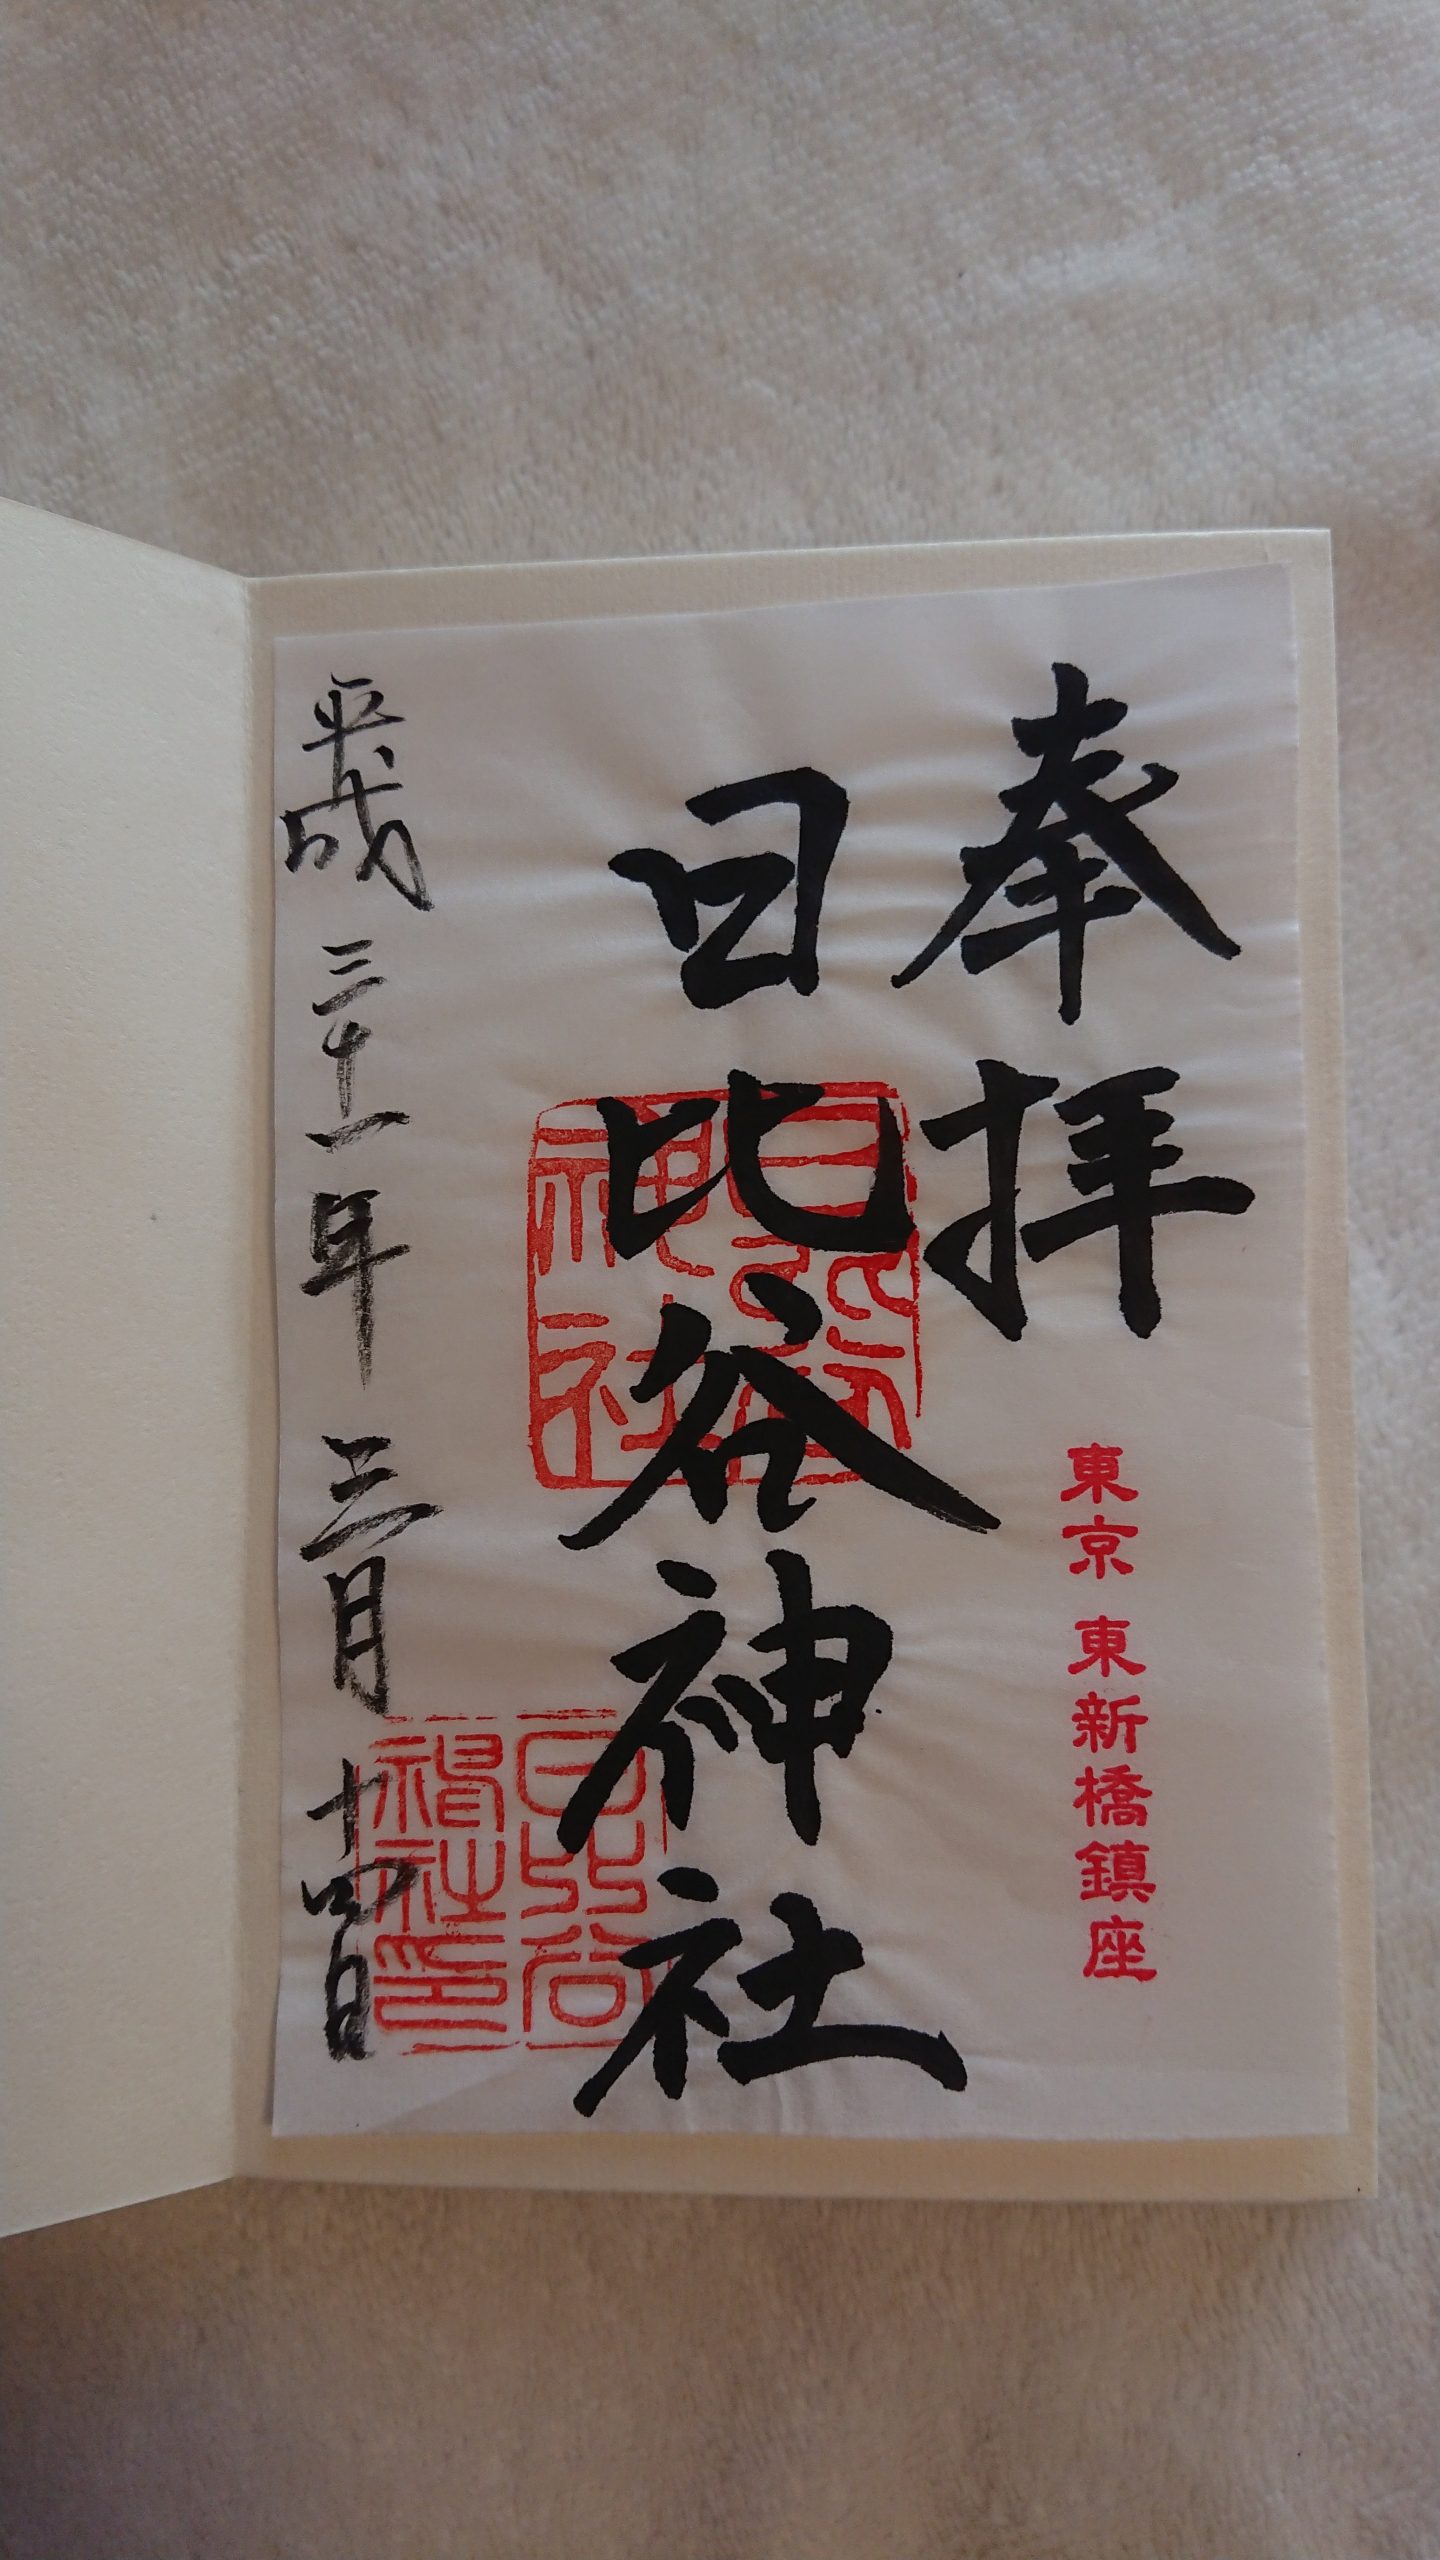 奉拝
東京 東新橋鎮座
日比谷神社
日比谷神社
日比谷神社印
平成三十一年三月十四日